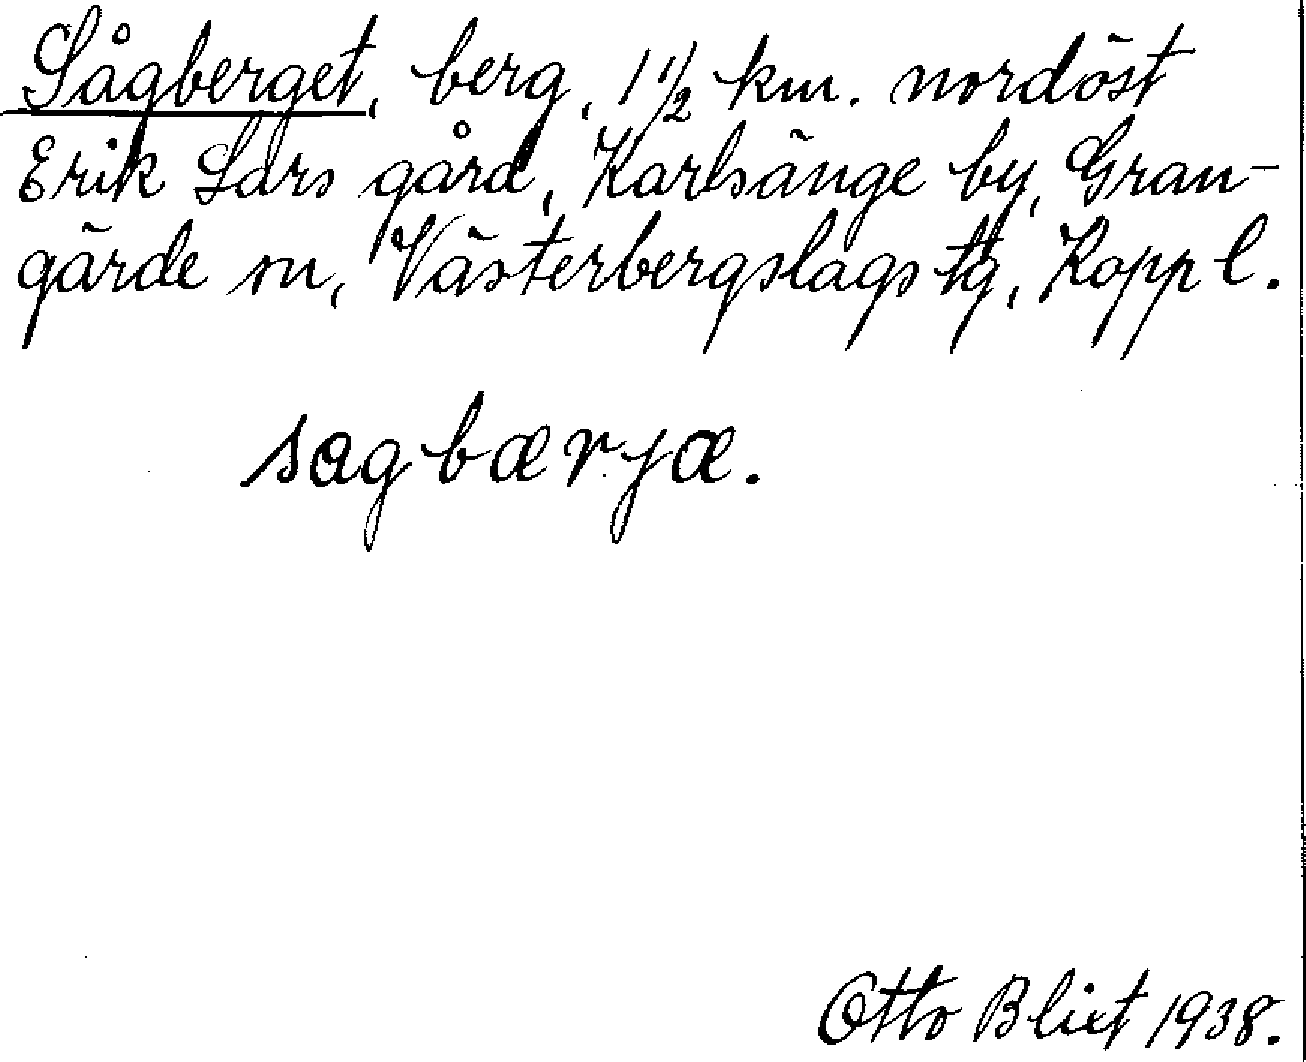 Sågberget, berg, 1 1/2 km. nordöst
Erik Lars gård, Karlsänge by, Gran-
gärde sn, Västerbergslags tg, Kopp l.
sagbærjæ.
Otto Blixt 1938.